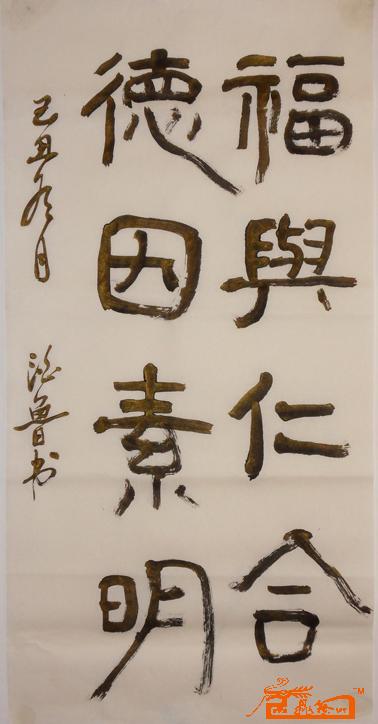 福與仁合
德因素明
己丑九月
浩魯书